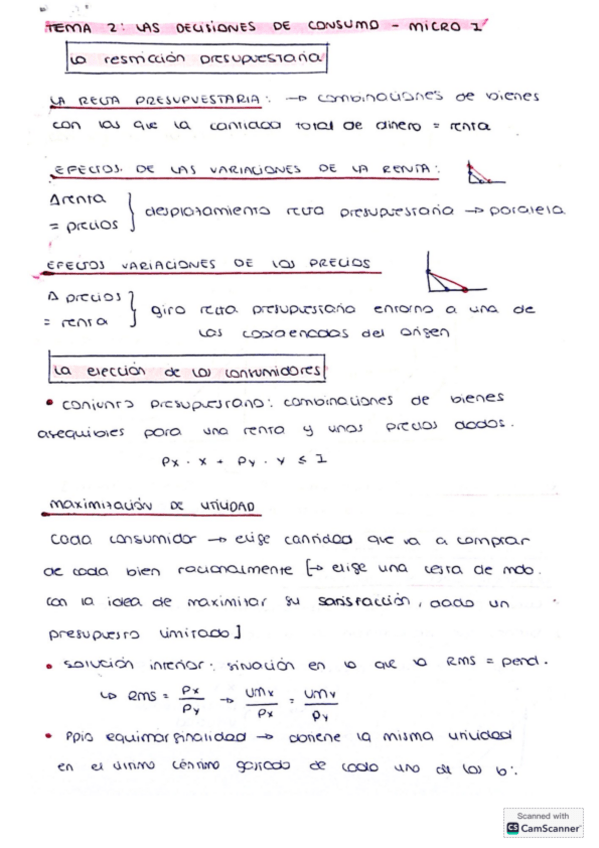 TEMA 2: LAS DECISIONES DE CONSUMO - MICRO 1
La restricción presupuestaria
LA RECTA PRESUPUESTARIA: → combinaciones de bienes
con las que la cantidad total de dinero = renta
EFECTOS. DE LAS VARIACIONES DE LA RENTA:
Δ renta
= precios } desplazamiento recta presupuestaria → paralela
EFECTOS VARIACIONES DE LOS PRECIOS
Δ precios
= renta } giro recta presupuestaria entorno a una de
las coordenadas del origen
La elección de los consumidores
• conjunto presupuestario: combinaciones de bienes
asequibles para una renta y unos precios dados.
Px · x + Py · y ≤ I
maximización DE UTILIDAD
Cada consumidor → elige cantidad que va a comprar
de cada bien racionalmente [→ elige una cesta de mdo.
con la idea de maximizar su satisfacción, dado un
presupuesto limitado]
• solución interior: situación en la que la RMS = pend.
↳ RMS = Px/Py → UMx/Px = UMy/Py
• Ppio equimarginalidad → obtiene la misma utilidad
en el último céntimo gastado de cada uno de los b:.
Scanned with
CS CamScanner